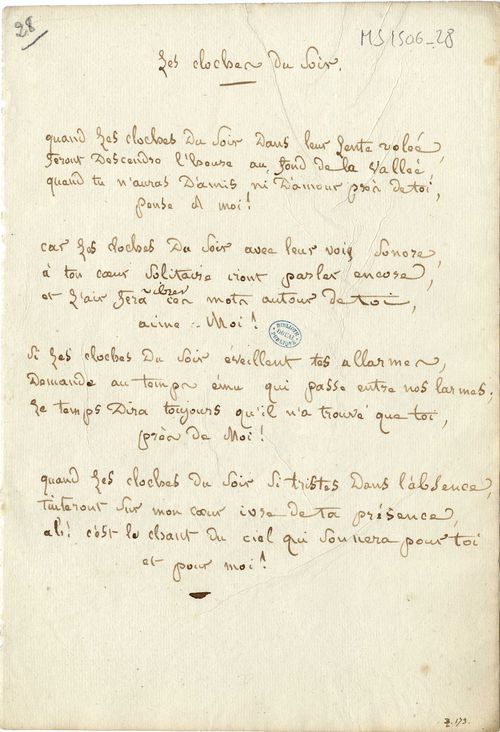 28
MS 1506-28
Les cloches du Soir.
quand Les cloches Du Soir Dans leur Lente voleé,
feront Descendre l'heure au fond de la valleé,
quand tu n'auras D'amis ni D'amour près de toi,
pense à moi!
car Les cloches Du Soir avec leur voix Sonore,
à ton cœur Solitaire iront parler encore,
et l'air fera vibrer ces mots autour de toi,
aime-Moi!
Si Les cloches Du Soir éveillent tes allarmes,
Demande au temps ému qui passe entre nos larmes;
Le temps Dira toujours qu'il n'a trouvé que toi,
près de Moi!
quand Les cloches du Soir Si tristes Dans l'absence,
tinteront Sur mon cœur ivre de ta présence,
ah! c'est le chant Du ciel qui Sonnera pour toi
et pour moi!